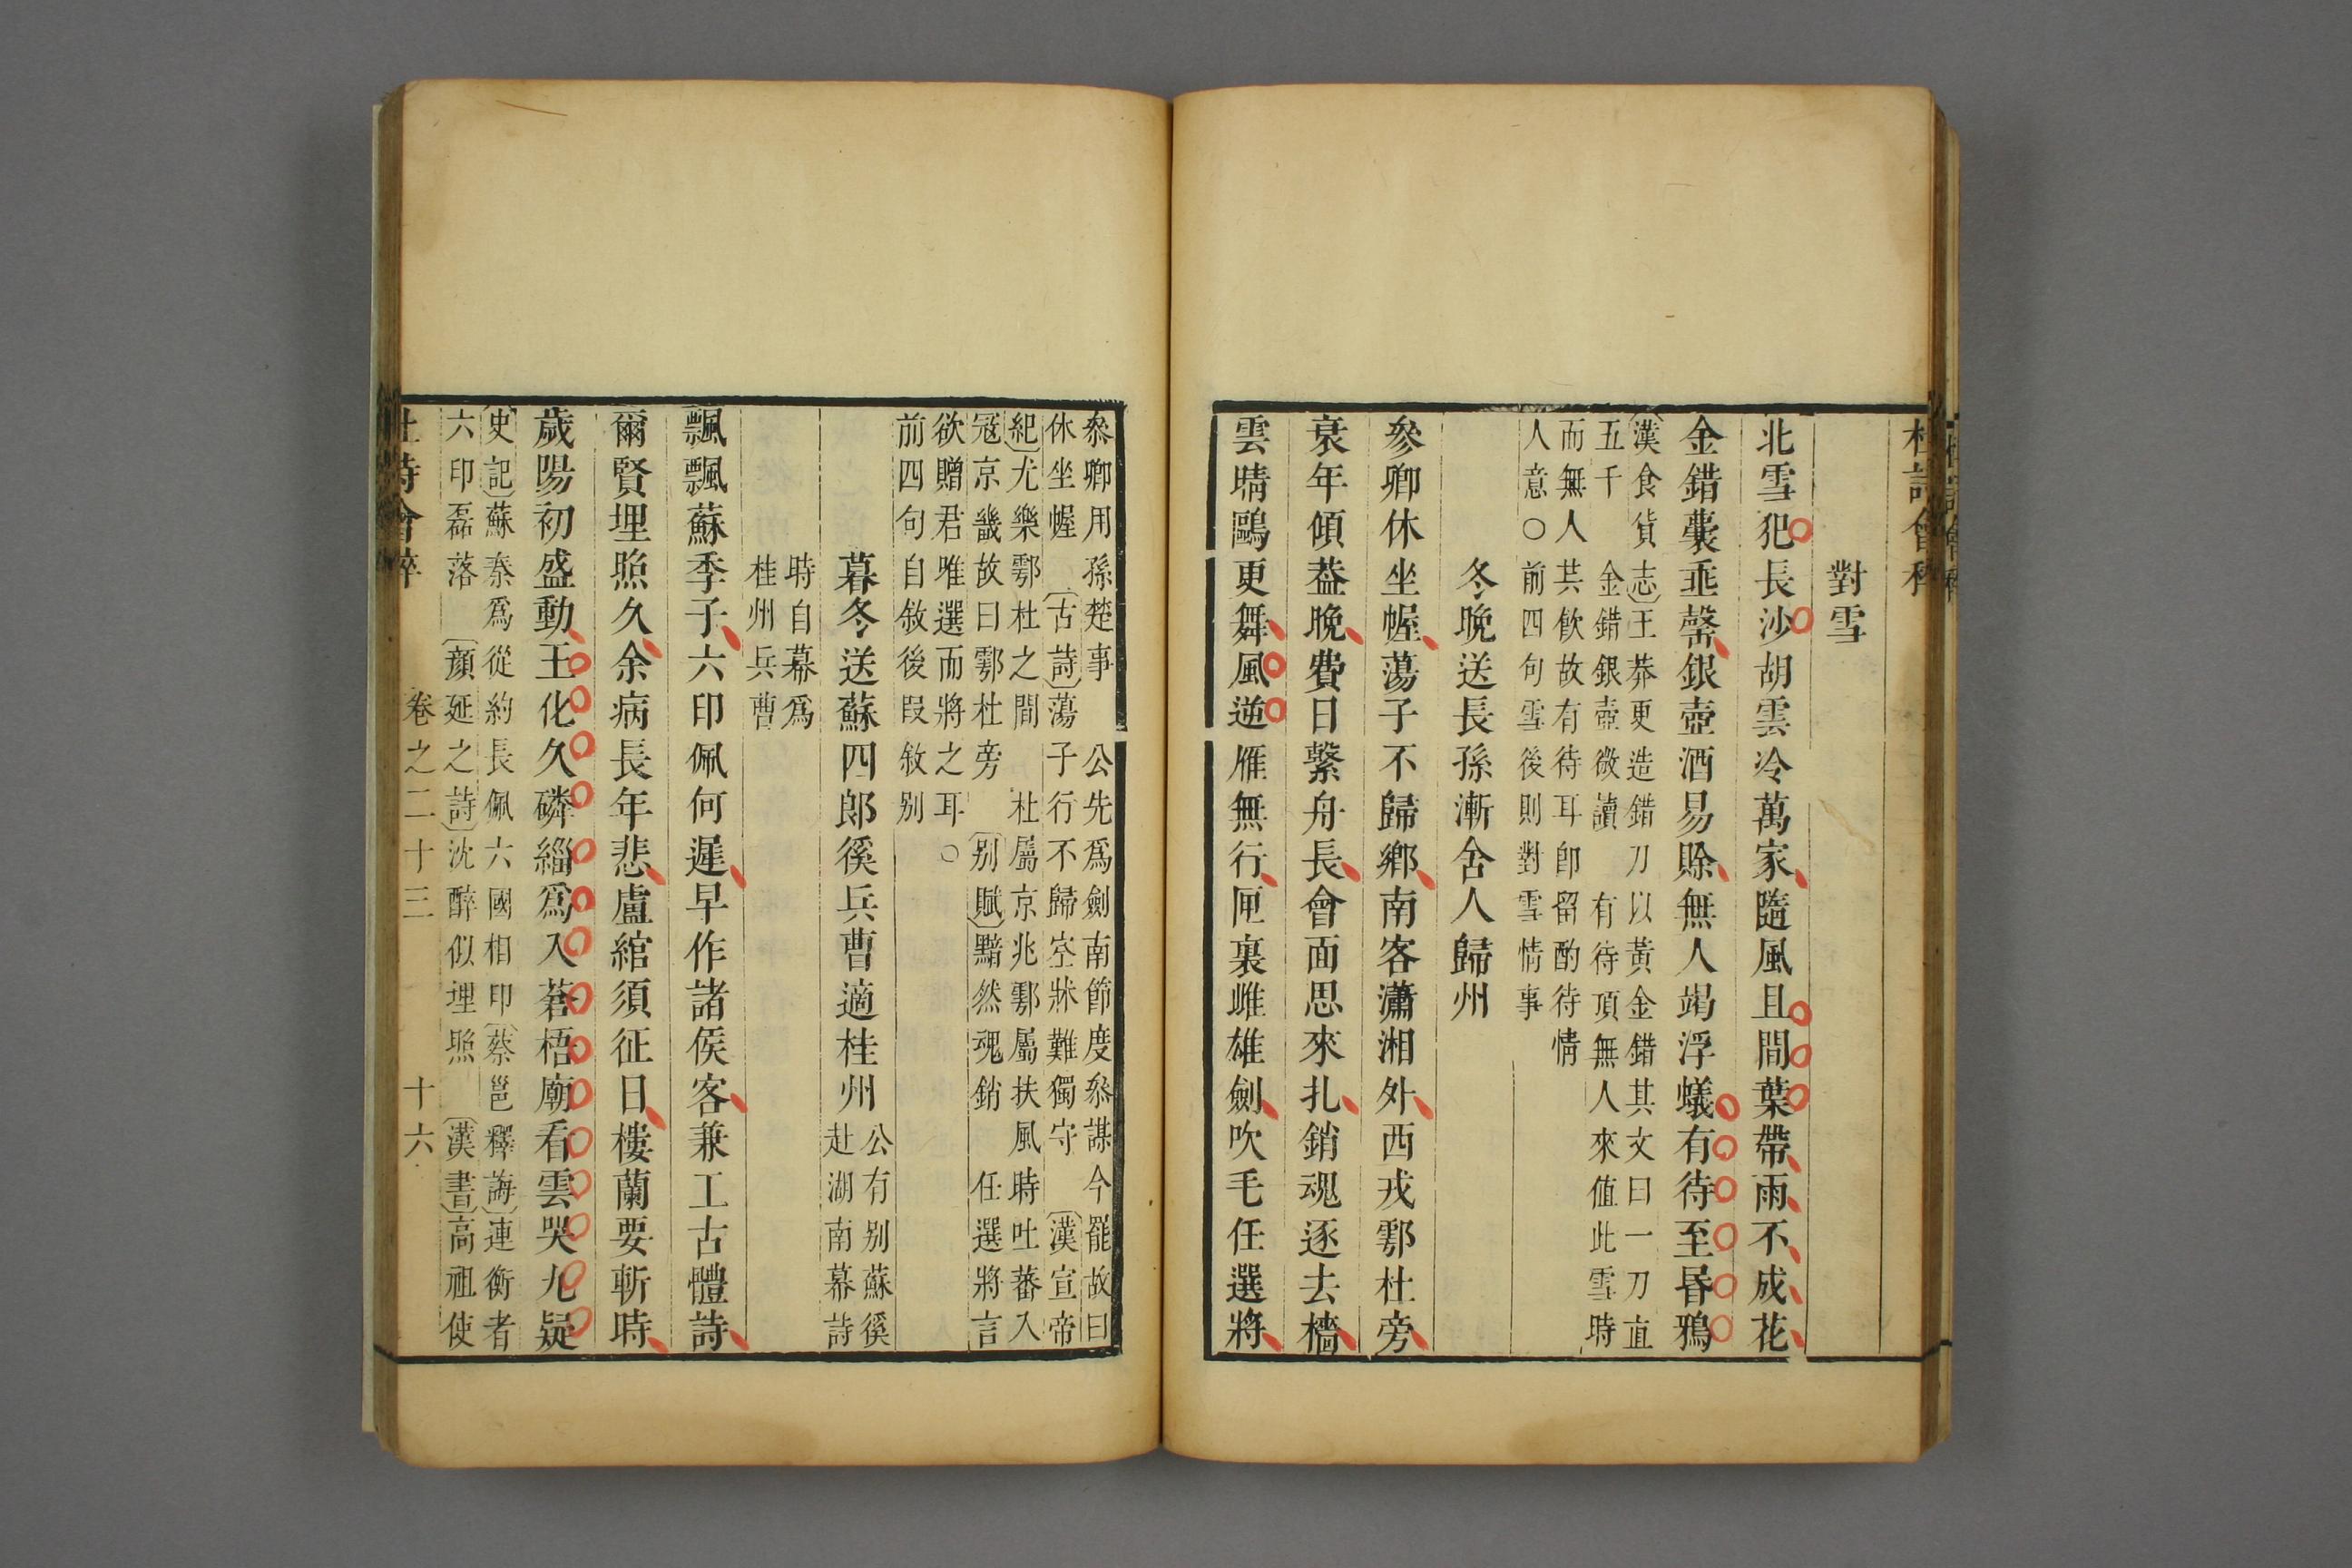 杜詩會稡
對雪
北雪犯長沙胡雲冷萬家隨風且間葉帶雨不成花
金錯囊垂罄銀壺酒易賒無人竭浮蟻有待至昏鴉
漢食貨志王莽更造錯刀以黃金錯其文曰一刀直
五千 金錯銀壺微讀 有待頂無人來值此雪時
而無人共飲故有待耳卽留酌待情
人意○前四句雪後則對雪情事
冬晚送長孫漸舍人歸州
參卿休坐幄蕩子不歸鄉南客瀟湘外西戎鄠杜旁
衰年傾葢晚費日繫舟長會面思來札銷魂逐去檣
雲晴鷗更舞風逆雁無行匣裏雌雄劍吹毛任選將
叅卿用孫楚事 公先爲劍南節度叅謀今罷故曰
休坐幄 古詩蕩子行不歸空牀難獨守 漢宣帝
紀尤樂鄠杜之間 杜屬京兆鄠屬扶風時吐蕃入
冦京畿故曰鄠杜旁 別賦黯然魂銷 任選將言
欲贈君唯選而將之耳○
前四句自敘後叚敘別
暮冬送蘇四郎徯兵曹適桂州
公有别蘇徯
赴湖南幕詩
時自幕爲
桂州兵曹
飄飄蘇季子六印佩何遲早作諸侯客兼工古體詩
爾賢埋照久余病長年悲盧綰須征日樓蘭要斬時
歲陽初盛動王化久磷緇爲入蒼梧廟看雲哭九疑
史記蘇秦爲從約長佩六國相印 蔡邕釋誨連衡者
六印磊落 顏延之詩沈醉似埋照 漢書高祖使
杜詩會稡 卷之二十三 十六